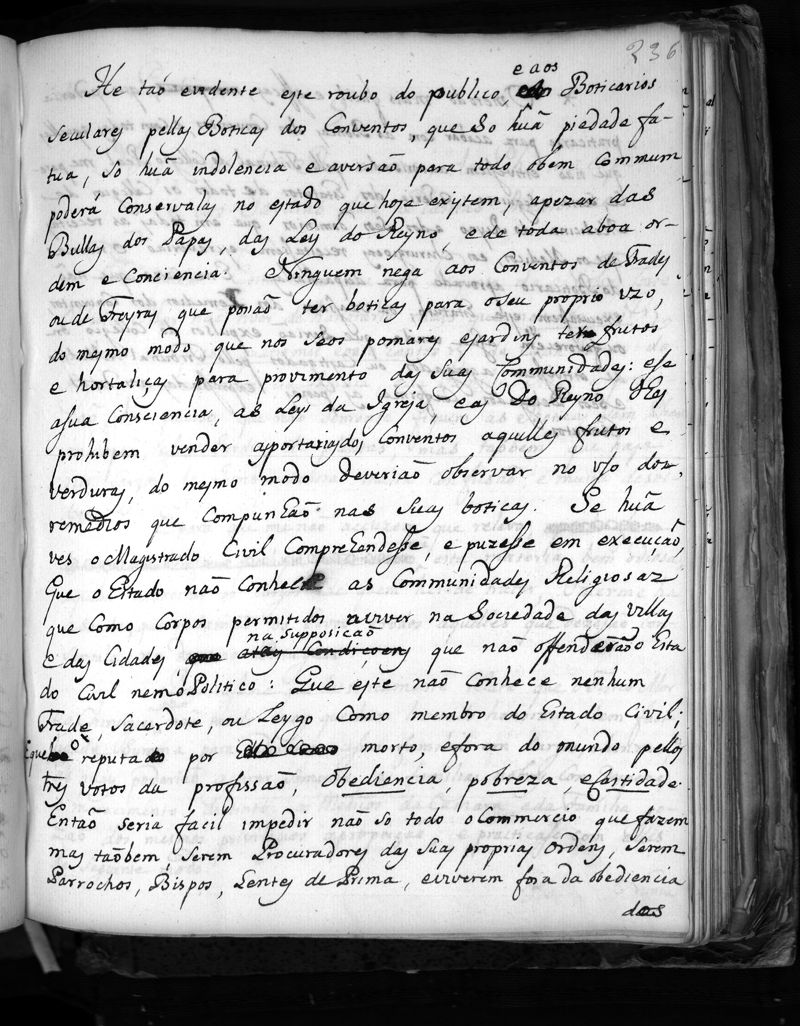 236
He taõ evidente este roubo do publico, e aos Boticarios
seculares pellas Boticas dos Conventos, que so huã piedade fa-
tua, so huã indolencia e aversaõ para todo obem Commum
poderá Conservalas no estado que hoje existem, apezar das
Bullas dos Papas, das Leys do Reyno, e de toda aboa or-
dem e Conciencia. Ninguem nega aos Conventos de Frades
ou de Freyras que posaõ ter boticas para oseu proprio uzo,
do mesmo modo que nos seos pomares ejardins tem frutos
e hortaliças para provimento das suas Communidades: ese
asua Consciencia, as Leys da Igreja, eas do Reyno lhes
prohibem vender asportarias dos Conventos aquelles frutos e
verduras, do mesmo modo deveriaõ observar no uso dos
remedios que Compunhaõ nas suas boticas. Se huã
ves o Magistrado Civil Comprehendesse, e puzesse em execuçaõ,
Que o Estado naõ Conhece as Communidades Religiosaz
que Como Corpos permitidos aviver na Sociedade das Villas
e das Cidades, na supposiçaõ que naõ offenderaõ o Esta
do Civil nem o Politico: Que este naõ Conhece nenhum
Frade, Sacerdote, ou Leygo Como membro do Estado Civil;
Eque o reputa por morto, efora do mundo pellos
tres votos da profissaõ, obediencia, pobreza, eCastidade.
Entaõ seria facil impedir naõ so todo oCommercio que fazem
mas taõbem serem Procuradores das suas proprias ordens, serem
Parrochos, Bispos, Lentes de Prima, eviverem fora da obediencia
das